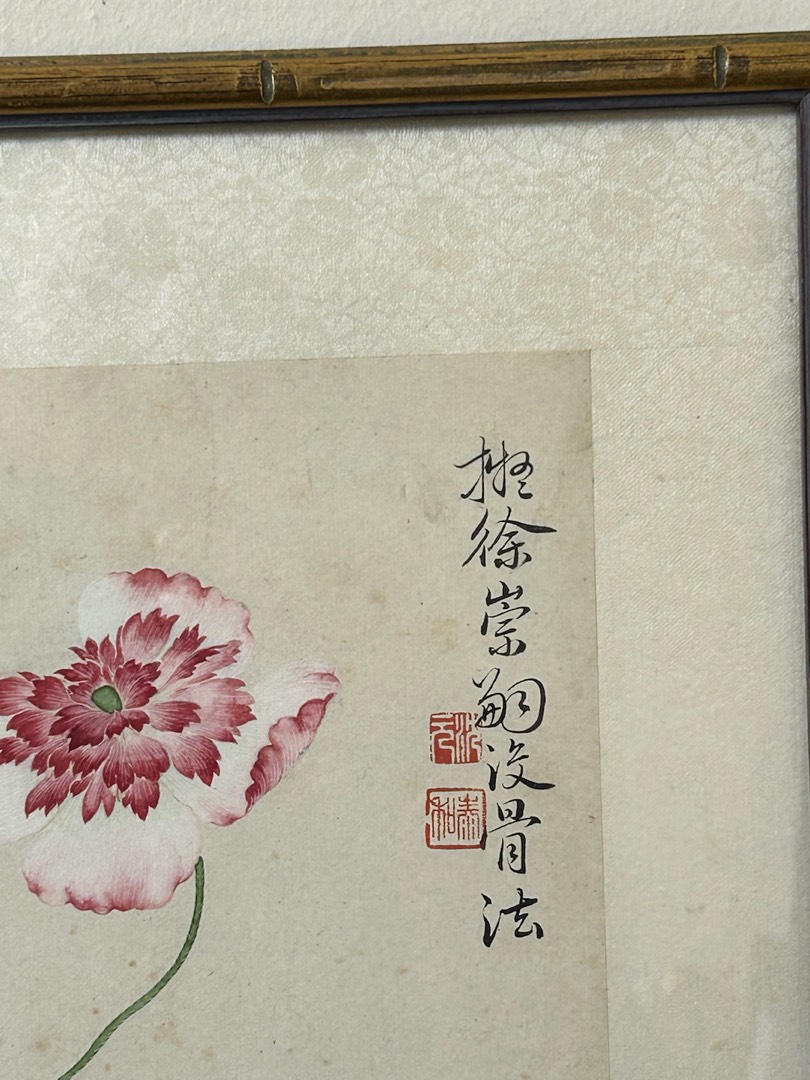 擬徐崇嗣没骨法